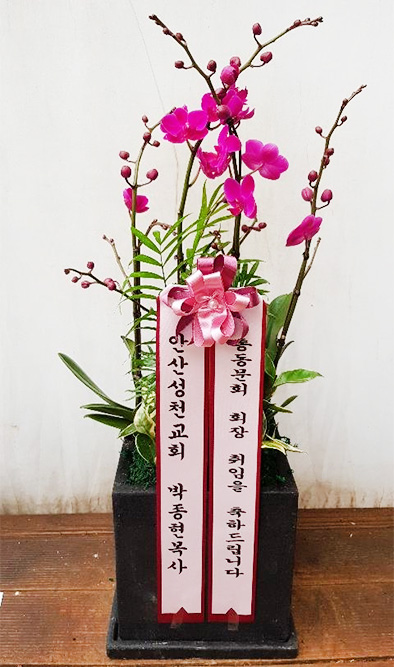 안산성천교회 박종현목사
총동문회 회장 취임을 축하드립니다